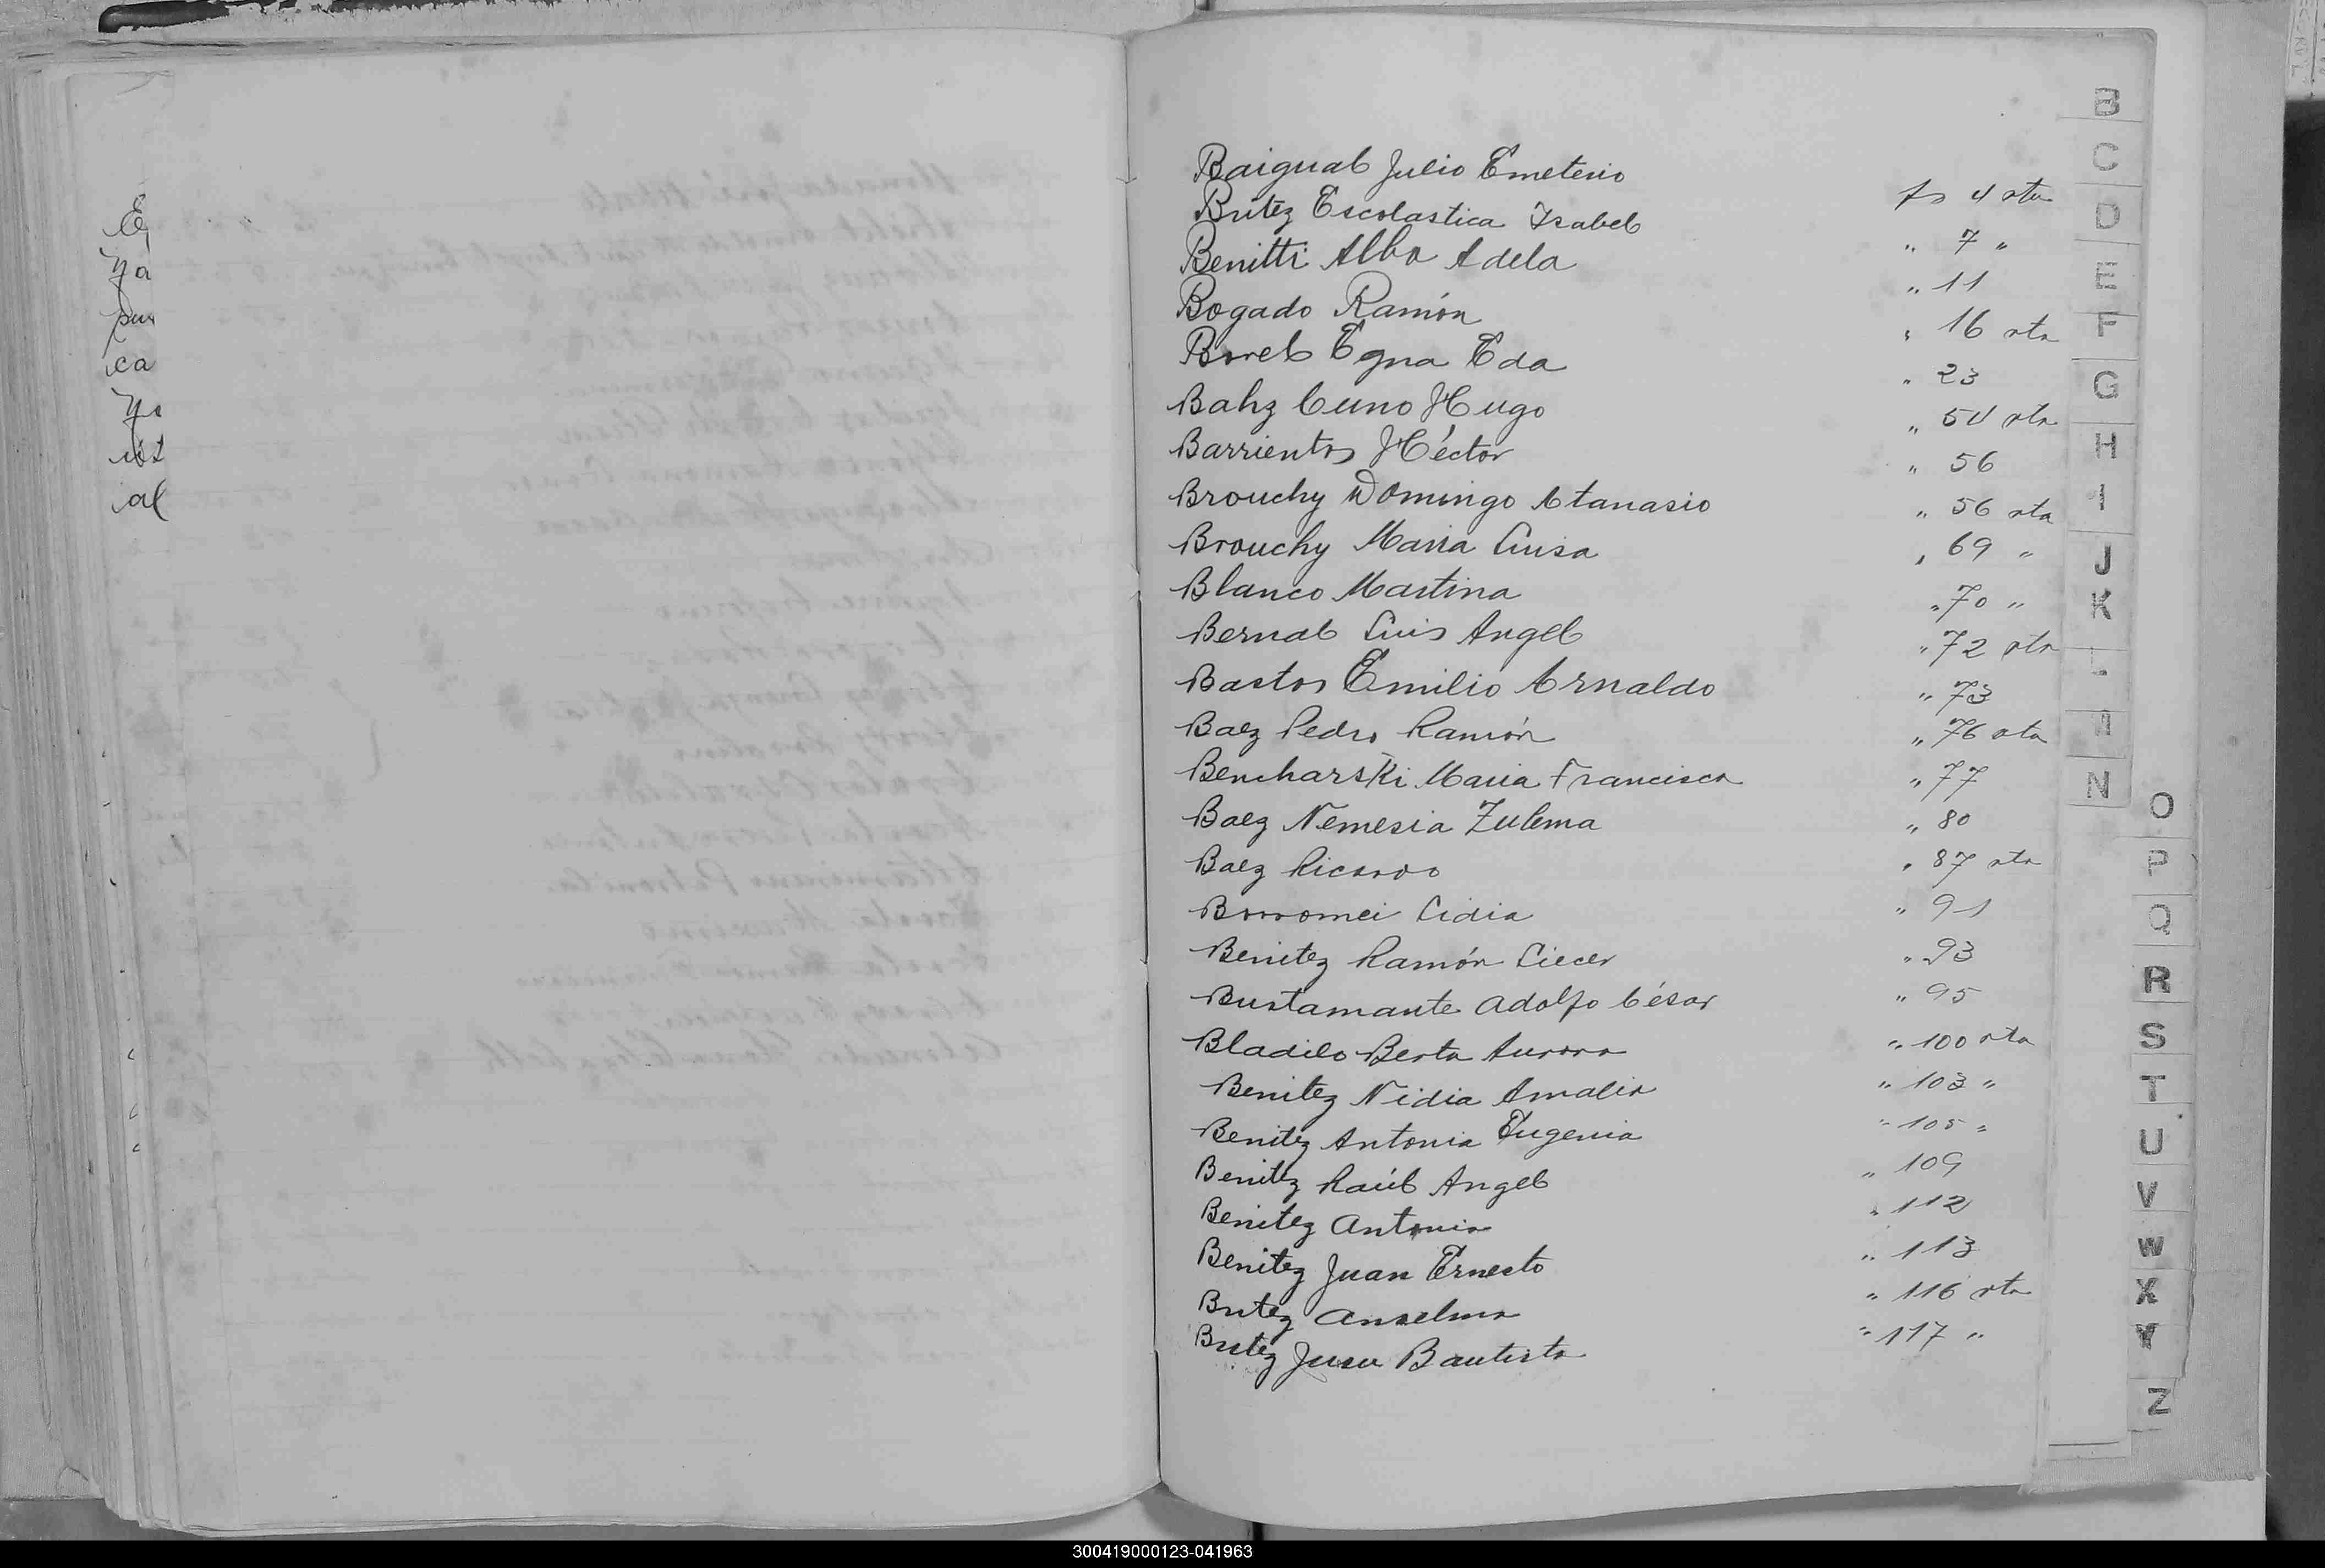 E
ya
pu
ca
ya
ist
al
B
C
D
E
F
G
H
I
J
K
L
N
O
P
Q
R
S
T
U
V
W
X
Y
Z
Baigual Julio Emeterio fs 4 vta
Britez Escolastica Isabel " 7 "
Benitti Alba Adela " 11
Bogado Ramón " 16 vta
Borel Egna Eda " 23
Bahz Cuno Hugo " 54 vta
Barrientos Héctor " 56
Brouchy Domingo Atanasio " 56 vta
Brouchy Maria Luisa " 69 "
Blanco Martina " 70 "
Bernal Luis Angel " 72 vta
Bastos Emilio Arnaldo " 73
Baez Pedro Ramón " 76 vta
Bencharski Maria Francisca " 77
Baez Nemesia Zulema " 80
Baez Ricardo " 87 vta
Borromei Lidia " 91
Benitez Ramón Liecer " 93
Bustamante Adolfo César " 95
Bladilo Berta Aurora " 100 vta
Benitez Nidia Amalia " 103 "
Benitez Antonia Eugenia " 105 "
Benitez Raúl Angel " 109
Benitez Antonia " 112
Benitez Juan Ernesto " 113
Britez Anselma " 116 vta
Britez Juan Bautista " 117 "
300419000123-041963